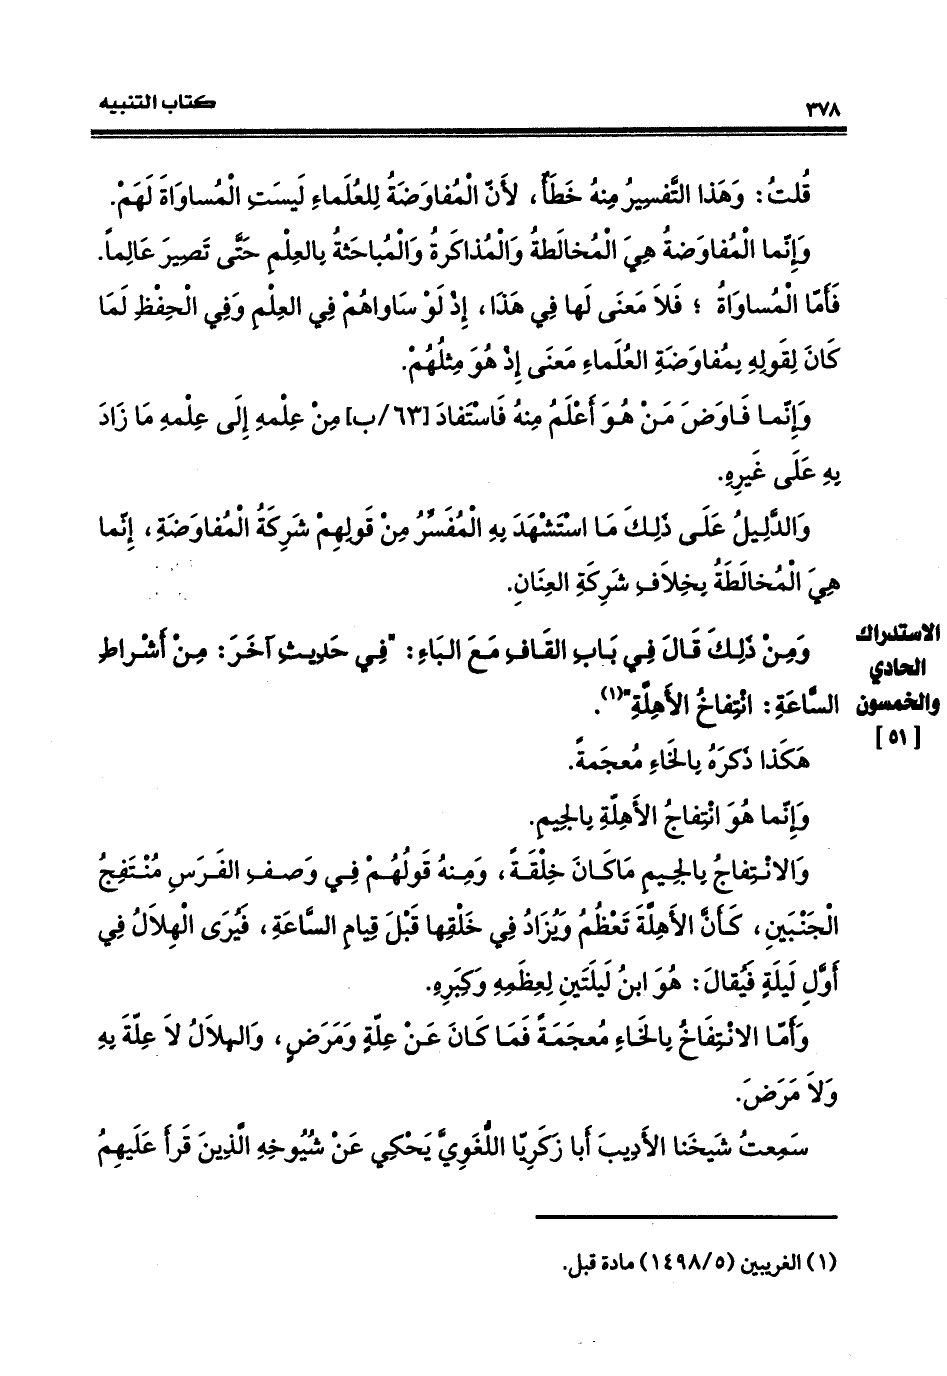 ٣٧٨
كتاب التنبيه
قُلتُ: وَهَذا التَّفسِيرُ مِنهُ خَطَأٌ، لأَنّ الْمُفاوَضَةُ لِلعُلَماءِ لَيسَتِ الْمُساوَاةَ لَهَمْ.
وَإِنّما الْمُفاوَضةُ هِيَ الْمُخالَطةُ وَالْمُذاكَرةُ وَالْمُباحَثةُ بِالعِلْمِ حَتَّى تَصِيرَ عَالِماً.
فَأَمّا الْمُساوَاةُ ؛ فَلاَ مَعْنَى لَها فِي هَذَا، إِذْ لَوْ سَاواهُمْ فِي العِلْمِ وَفِي الْحِفْظِ لَمَا
كَانَ لِقَولِهِ بِمُفاوَضَةِ العُلَماءِ مَعْنَى إِذْ هُوَ مِثلُهُمْ.
وَإِنّمـا فَـاوَضَ مَـنْ هُـوَ أَعْلَمُ مِنهُ فَاسْتَفادَ [٦٣/ب] مِنْ عِلْمِهِ إِلَى عِلْمِهِ مَا زَادَ
بِهِ عَلَى غَيرِهِ.
وَالدَّلِيلُ عَلَـى ذَلِـكَ مَـا اسْتَشْهَدَ بِهِ الْمُفَسِّرُ مِنْ قَولِهِمْ شَرِكَةُ الْمُفاوَضَةِ، إِنّما
هِيَ الْمُخالَطَةُ بِخِلاَفِ شَرِكَةِ العِنَانِ.
الاستدراك
الحادي
والخمسون
[٥١]
وَمِـنْ ذَلِـكَ قَالَ فِي بَابِ القَافِ مَعَ البَاءِ: "فِي حَدِيثٍ آخَرَ: مِـنْ أَشْراطِ
السَّاعَةِ: انْتِفاخُ الأَهِلَّةِ"(١).
هَكَذا ذَكَرَهُ بِالخَاءِ مُعجَمةً.
وَإِنّما هُوَ انْتِفاجُ الأَهِلّةِ بِالجِيمِ.
وَالانْتِفاجُ بِالجِيمِ مَاكَـانَ خِلْقَـةً، وَمِـنهُ قَولُهُـمْ فِـي وَصـفِ الفَـرَسِ مُنْتَفِجُ
الْجَنْبَينِ، كَـأَنَّ الأَهِلَّةَ تَعْظُمُ وَيُزَادُ فِي خَلْقِها قَبْلَ قِيامِ السَّاعَةِ، فَيُرَى الْهِلاَلُ فِي
أَوَّلِ لَيلَةٍ فَيُقالَ: هُوَ ابنُ لَيلَتَينِ لِعِظَمِهِ وَكِبَرِهِ.
وَأَمّا الانْتِفَاخُ بِالخَاءِ مُعجَمَةً فَمَا كَانَ عَـنْ عِلّةٍ وَمَرَضٍ، وَالهِلاَلُ لاَ عِلّةَ بِهِ
وَلاَ مَرَضَ.
سَمِعتُ شَيخَنا الأَدِيبَ أَبا زَكَرِيّا اللُّغَوِيَّ يَحْكِي عَنْ شُيُوخِهِ الّذِينَ قَرأَ عَلَيهِمُ
(١) الغريبين (١٤٩٨/٥) مادة قبل.